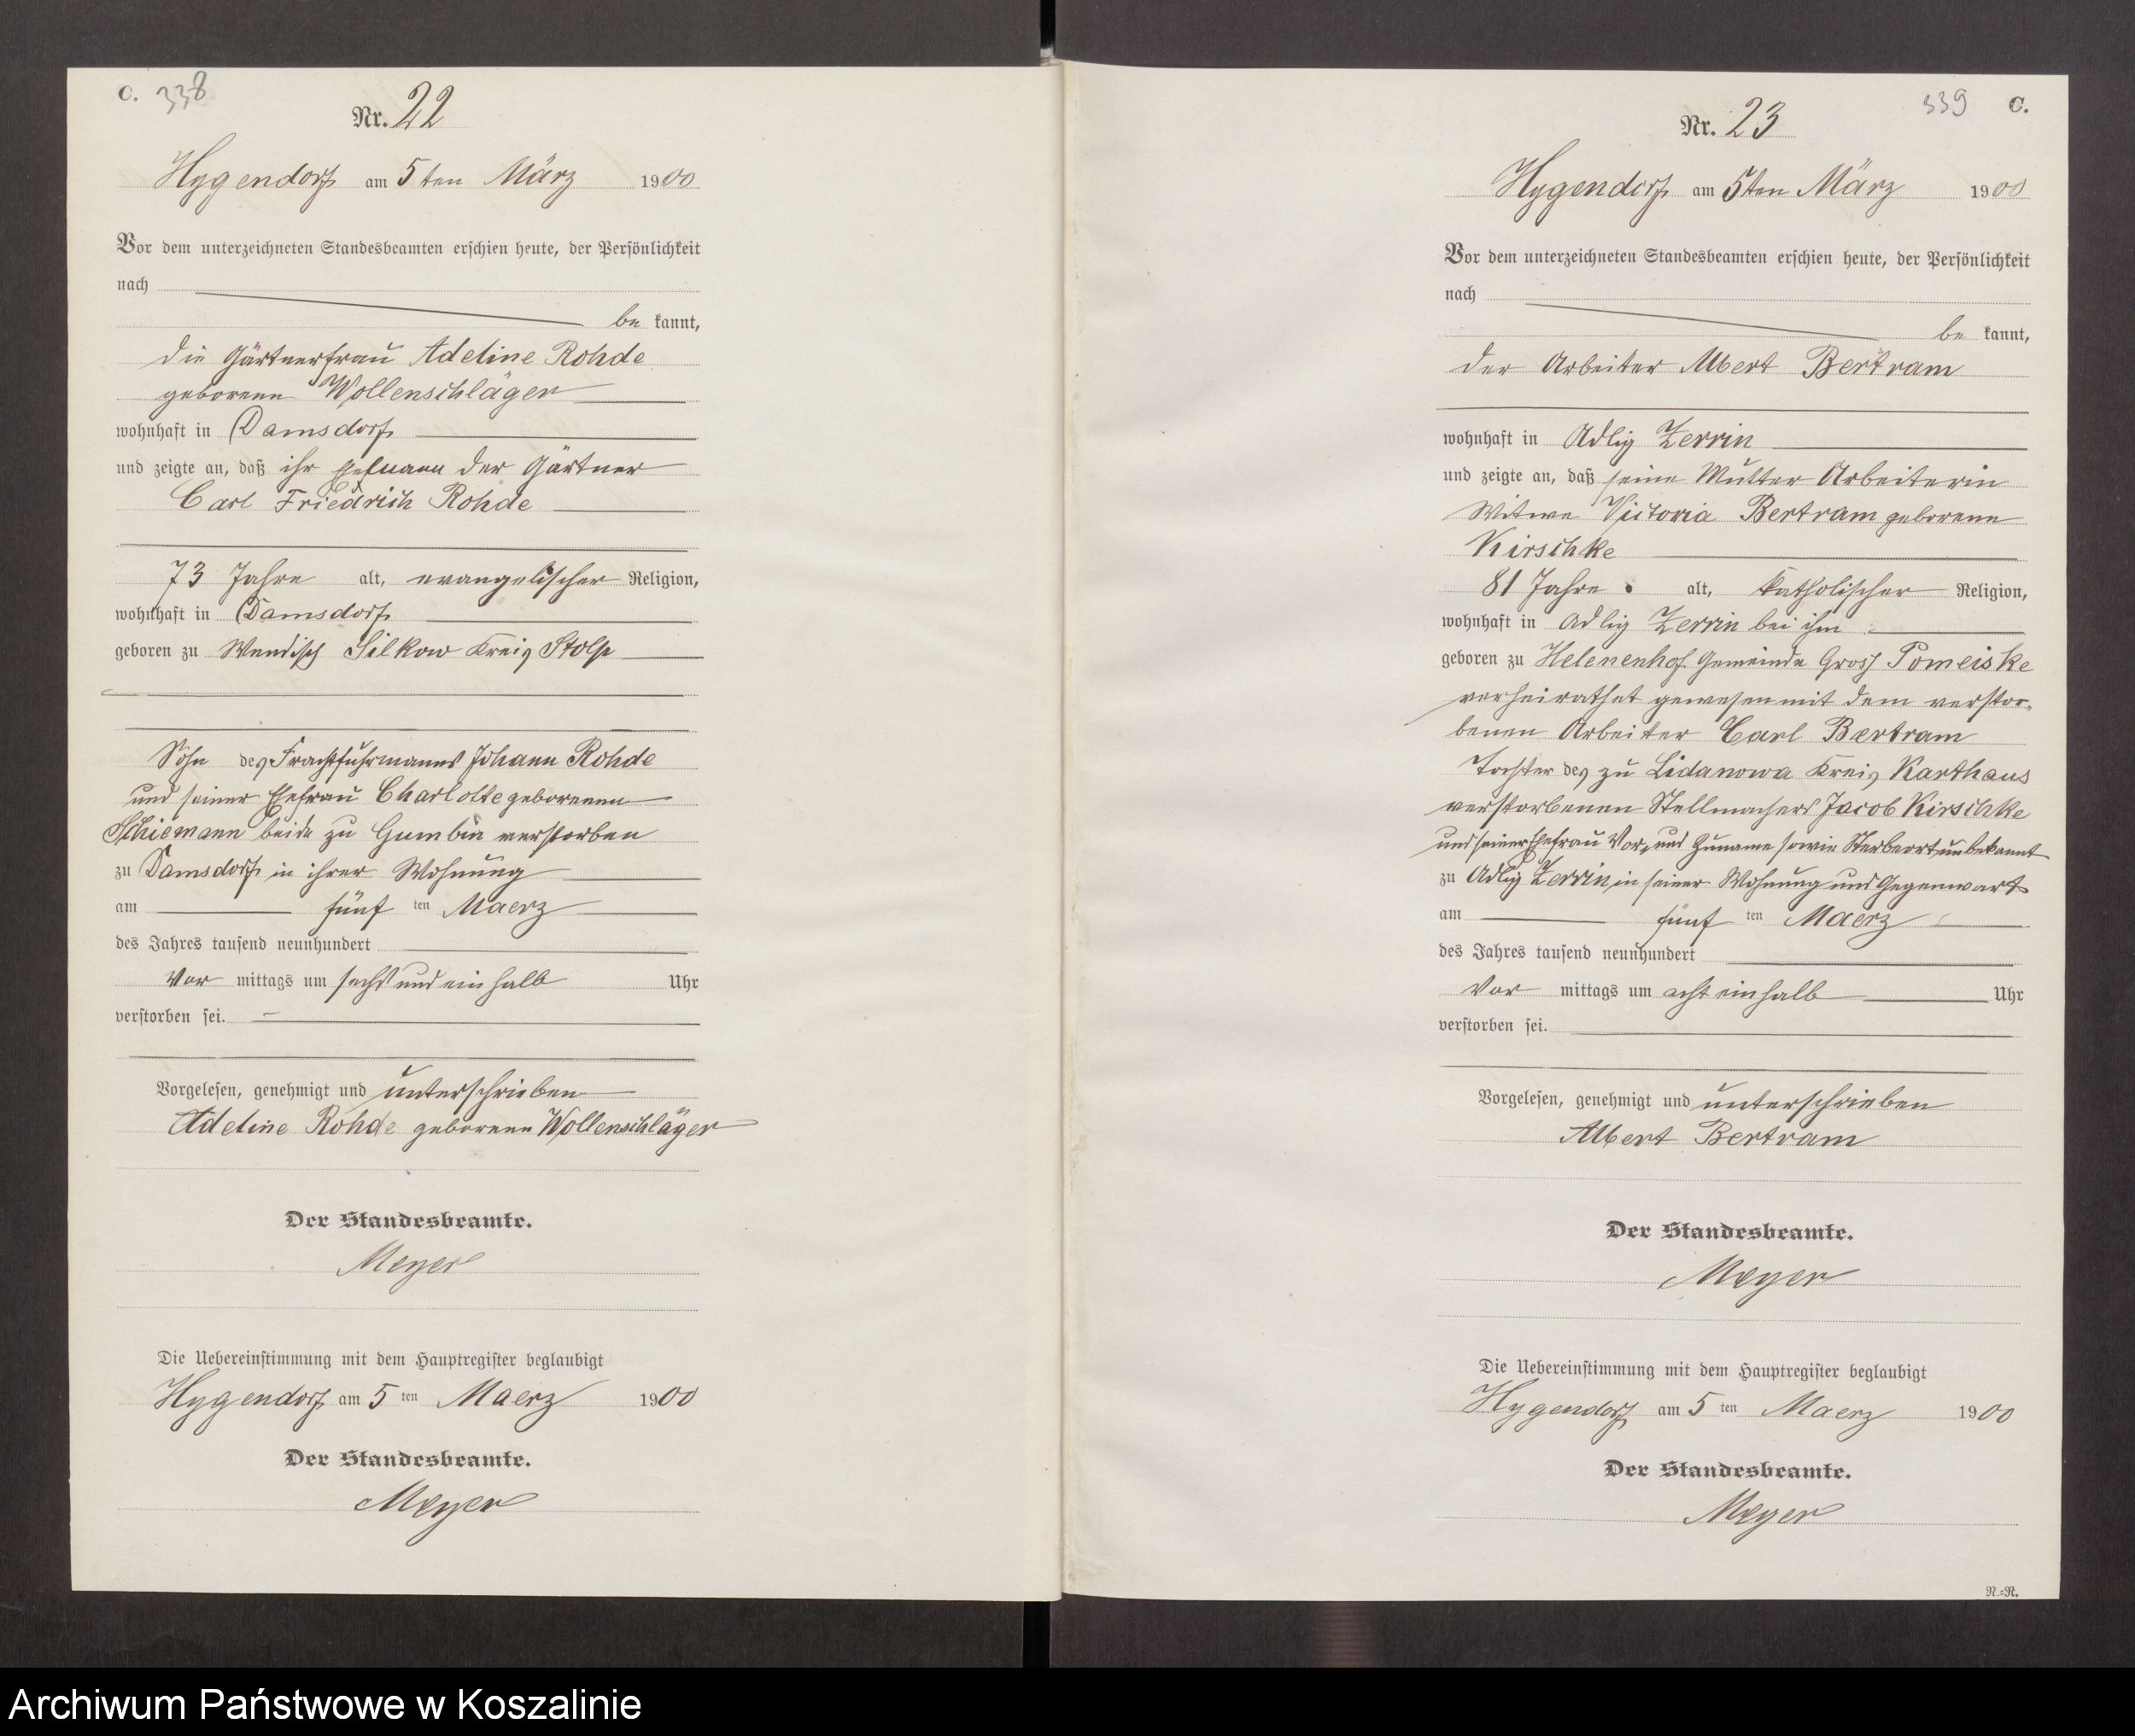 C. 338
Nr. 22
Hygendorf am 5ten März 1900
Vor dem unterzeichneten Standesbeamten erschien heute, der Persönlichkeit
nach
be kannt,
die Gärtnerfrau Adeline Rohde
geborene Wollenschläger
wohnhaft in Damsdorf
und zeigte an, daß ihr Ehemann der Gärtner
Carl Friedrich Rohde
73 Jahre alt, evangelischer Religion,
wohnhaft in Damsdorf
geboren zu Wendisch Silkow Kreis Stolp
Sohn des Frachtfuhrmanns Johann Rohde
und seiner Ehefrau Charlotte geborenen
Schiemann beide zu Gumbin verstorben
zu Damsdorf in ihrer Wohnung
am fünf ten Maerz
des Jahres tausend neunhundert
Vor mittags um sechs und ein halb Uhr
verstorben sei.
Vorgelesen, genehmigt und unterschrieben
Adeline Rohde geborene Wollenschläger
Der Standesbeamte.
Meyer
Die Uebereinstimmung mit dem Hauptregister beglaubigt
Hygendorf am 5 ten Maerz 1900
Der Standesbeamte.
Meyer
339 C.
Nr. 23
Hygendorf am 5ten März 1900
Vor dem unterzeichneten Standesbeamten erschien heute, der Persönlichkeit
nach
be kannt,
der Arbeiter Albert Bertram
wohnhaft in Adlig Zerrin
und zeigte an, daß seine Mutter Arbeiterin
Witwe Victoria Bertram geborene
Kirschke
81 Jahre alt, katholischer Religion,
wohnhaft in Adlig Zerrin bei ihm
geboren zu Helenenhof Gemeinde Gross Pomeiske
verheirathet gewesen mit dem verstor-
benen Arbeiter Carl Bertram
Tochter des zu Lidanowa Kreis Karthaus
verstorbenen Stellmachers Jacob Kirschke
und seiner Ehefrau Vor- und Zuname sowie Sterbeort unbekannt
zu Adlig Zerrin, in seiner Wohnung und Gegenwart
am fünf ten Maerz
des Jahres tausend neunhundert
Vor mittags um acht ein halb Uhr
verstorben sei.
Vorgelesen, genehmigt und unterschrieben
Albert Bertram
Der Standesbeamte.
Meyer
Die Uebereinstimmung mit dem Hauptregister beglaubigt
Hygendorf am 5 ten Maerz 1900
Der Standesbeamte.
Meyer
N.-R.
Archiwum Państwowe w Koszalinie